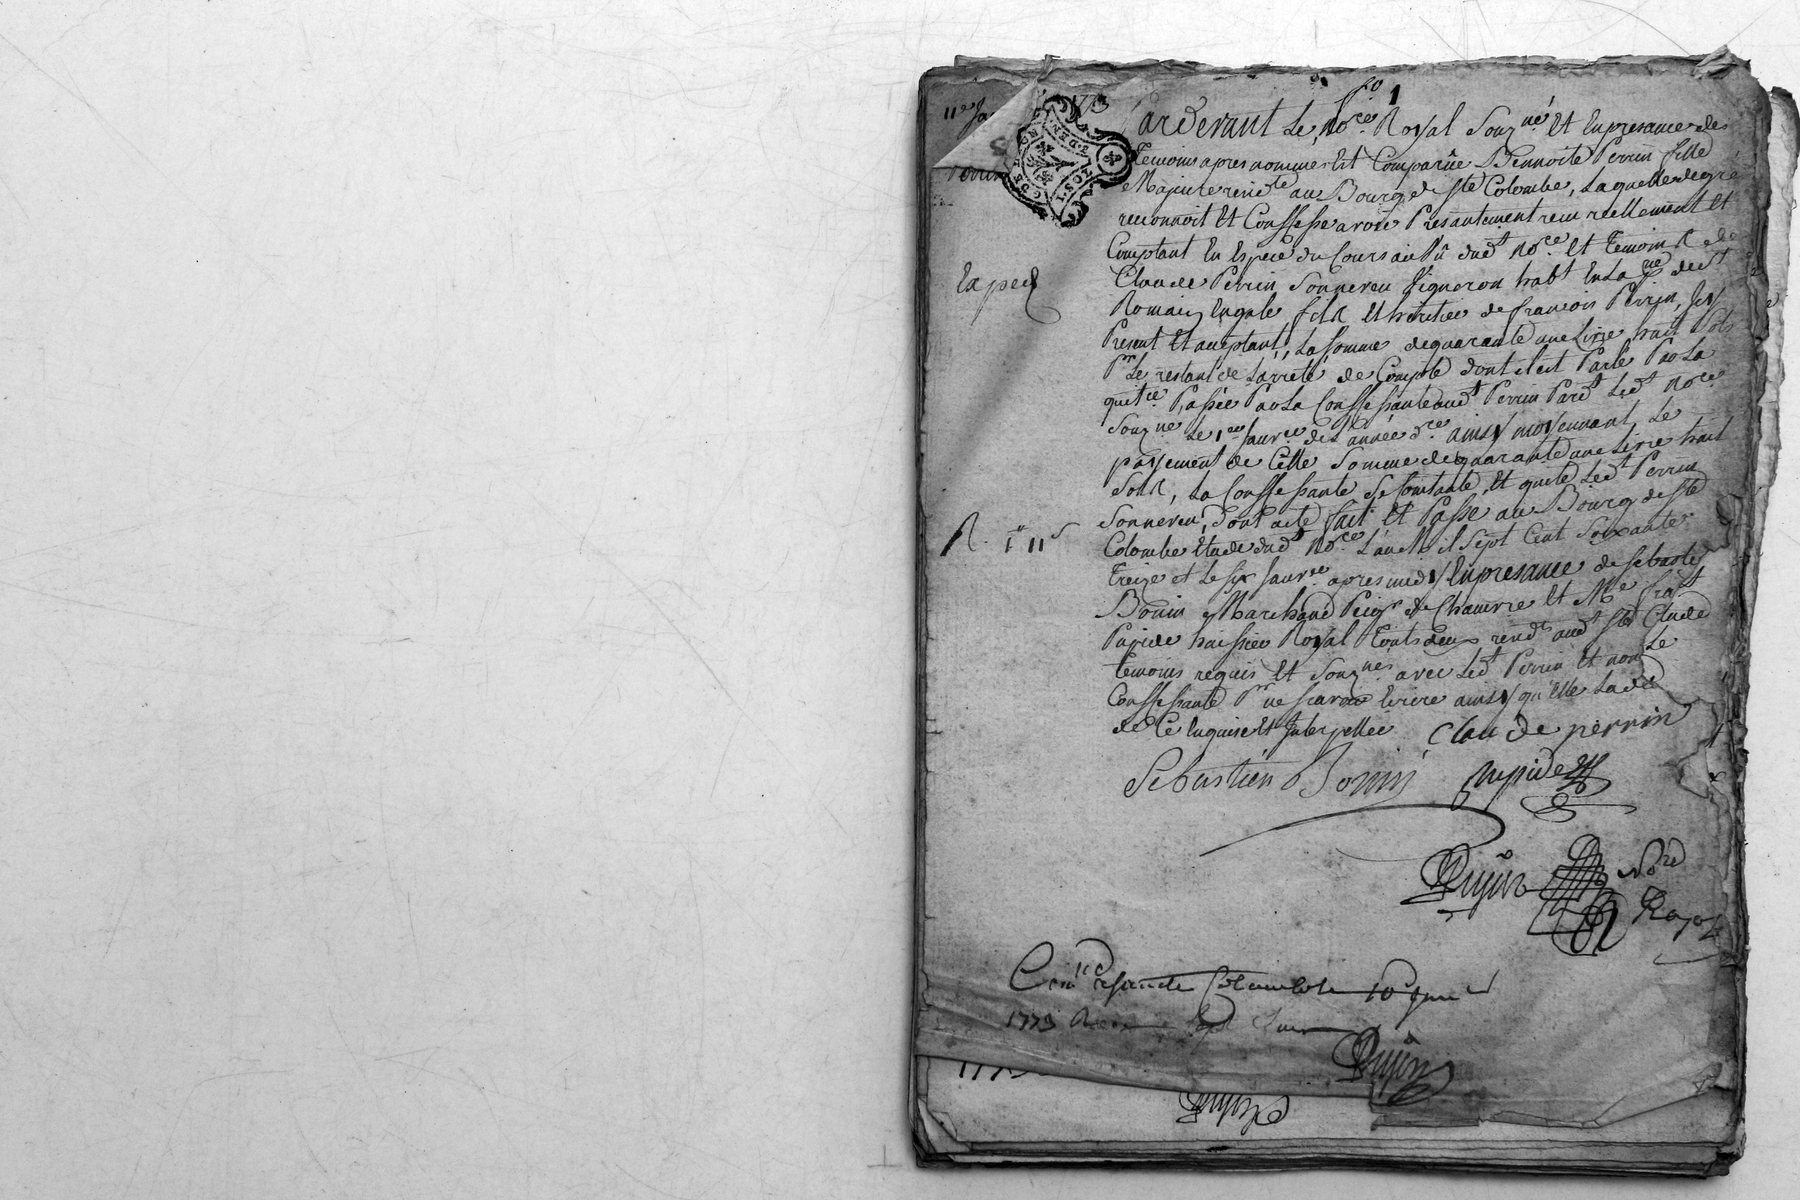 fo 1
11e Ja
Pardevant Le Nore Royal Souzné Et En presance des
Temoins apres nommes Est Comparüe Bennoite Perrin fille
Majeure residte au Bourg de Ste Colombe, Laquelle de gré
reconnoit Et Confesse avoir Presantement recu reellement Et
Comptant En Espece du Cours au Vû dudt Nore Et Temoins de
Claude Perrin Sonneveu Vigneron habt En La psse de st
Expedᵉ
Romain En gale fils Et heritier de francois Perrin, Icy
Present Et aceptant, La Somme de quarante une Livre huit sols
Pr Le restant de Larreté de Compte dont il est Parlé Par La
quitce Passée Par La Confessante audt Perrin Pardt Ledt Nore
Souzné Le 1er Janvr de L'année dre ainsy moyennant Le
payement de Cette Somme de quarante une Livre huit
sols, La Confessante Se Contante Et quitte Ledt Perrin
Sonneveu, Dont acte fait Et Passé au Bourg de Ste
Colombe Etude dudt Nore L'an mil Sept Cent Soixante
Treize et Le six Janvier apres midy En presance de Sebastn
Bonin Marchand Peigr de Chanvre Et Me frat
Pupide huissier Royal Touts deux residts audt Ste Clude
Temoins requis Et Souznés avec Ledt Perrin Et non La
Confessante Pr ne scavoir Ecrire ainsy qu'elle La dt
de Ce Enquise Et Interpellée Claude perrin
Sebastien Bonin pupide
Dujin Nore
Royal
Conlé a sainte Colombe le 10 janv
1773 Recu Sept Sous
Dujin